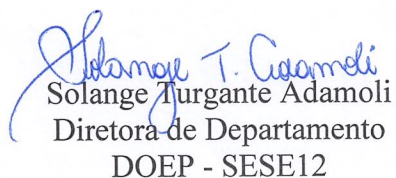 Solange T. Adamoli
Solange Turgante Adamoli
Diretora de Departamento
DOEP - SESE12